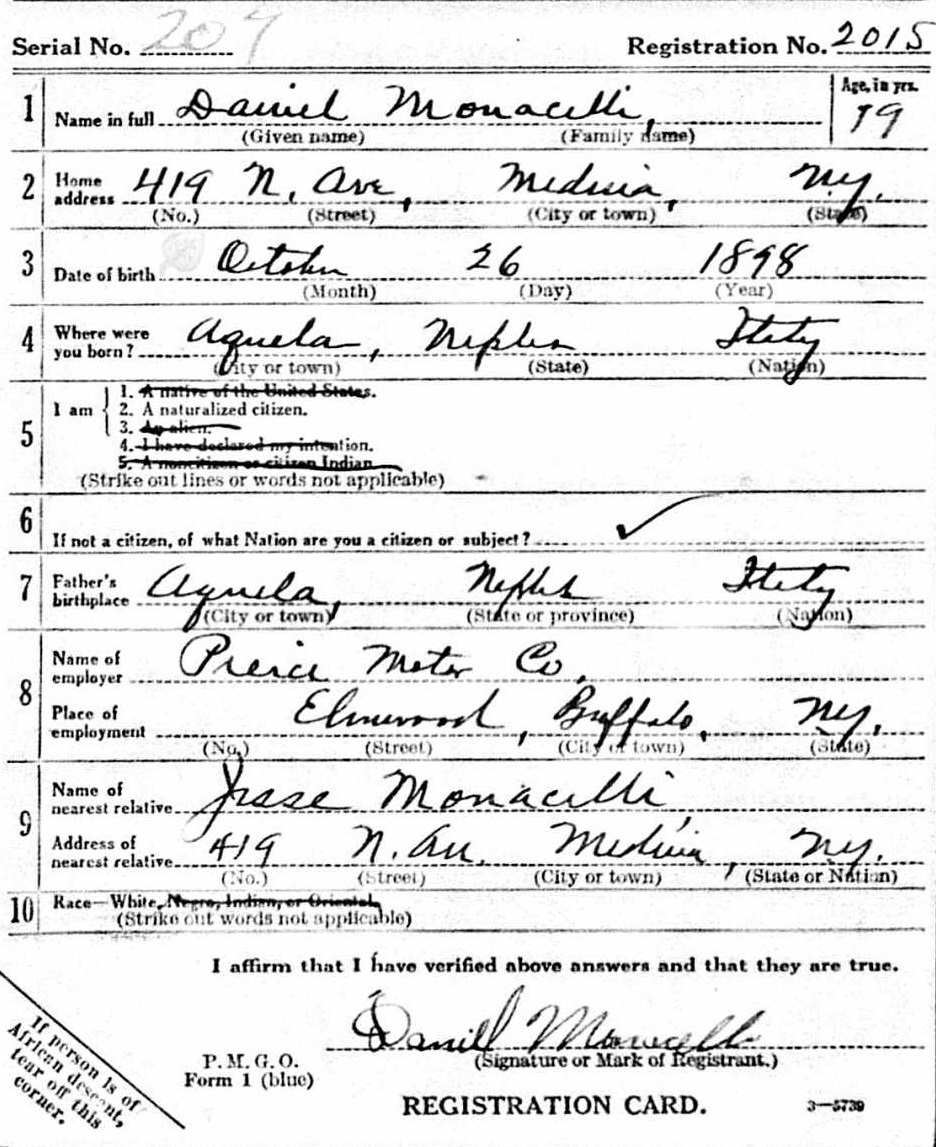 Serial No. 209 Registration No. 2015
1 Name in full Daniel Monacelli, Age, in yrs. 19
(Given name) (Family name)
2 Home address 419 N. Ave, Medina, NY.
(No.) (Street) (City or town) (State)
3 Date of birth October 26 1898
(Month) (Day) (Year)
4 Where were you born? Aquela, Neples Itety
(City or town) (State) (Nation)
5 I am
1. A native of the United States.
2. A naturalized citizen.
3. An alien.
4. I have declared my intention.
5. A noncitizen or citizen Indian.
(Strike out lines or words not applicable)
6 If not a citizen, of what Nation are you a citizen or subject? ✓
7 Father's birthplace Aquela, Neples Itety
(City or town) (State or province) (Nation)
8 Name of employer Preirce Moter Co.
Place of employment Elmwood, Buffalo, NY.
(No.) (Street) (City or town) (State)
9 Name of nearest relative Jesse Monacelli,
Address of nearest relative 419 N. Av. Medina, NY.
(No.) (Street) (City or town) (State or Nation)
10 Race—White, Negro, Indian, or Oriental.
(Strike out words not applicable)
I affirm that I have verified above answers and that they are true.
Daniel Monacelli
(Signature or Mark of Registrant.)
P. M. G. O.
Form 1 (blue)
REGISTRATION CARD. 3—5739
If person is of
African descent,
tear off this
corner.